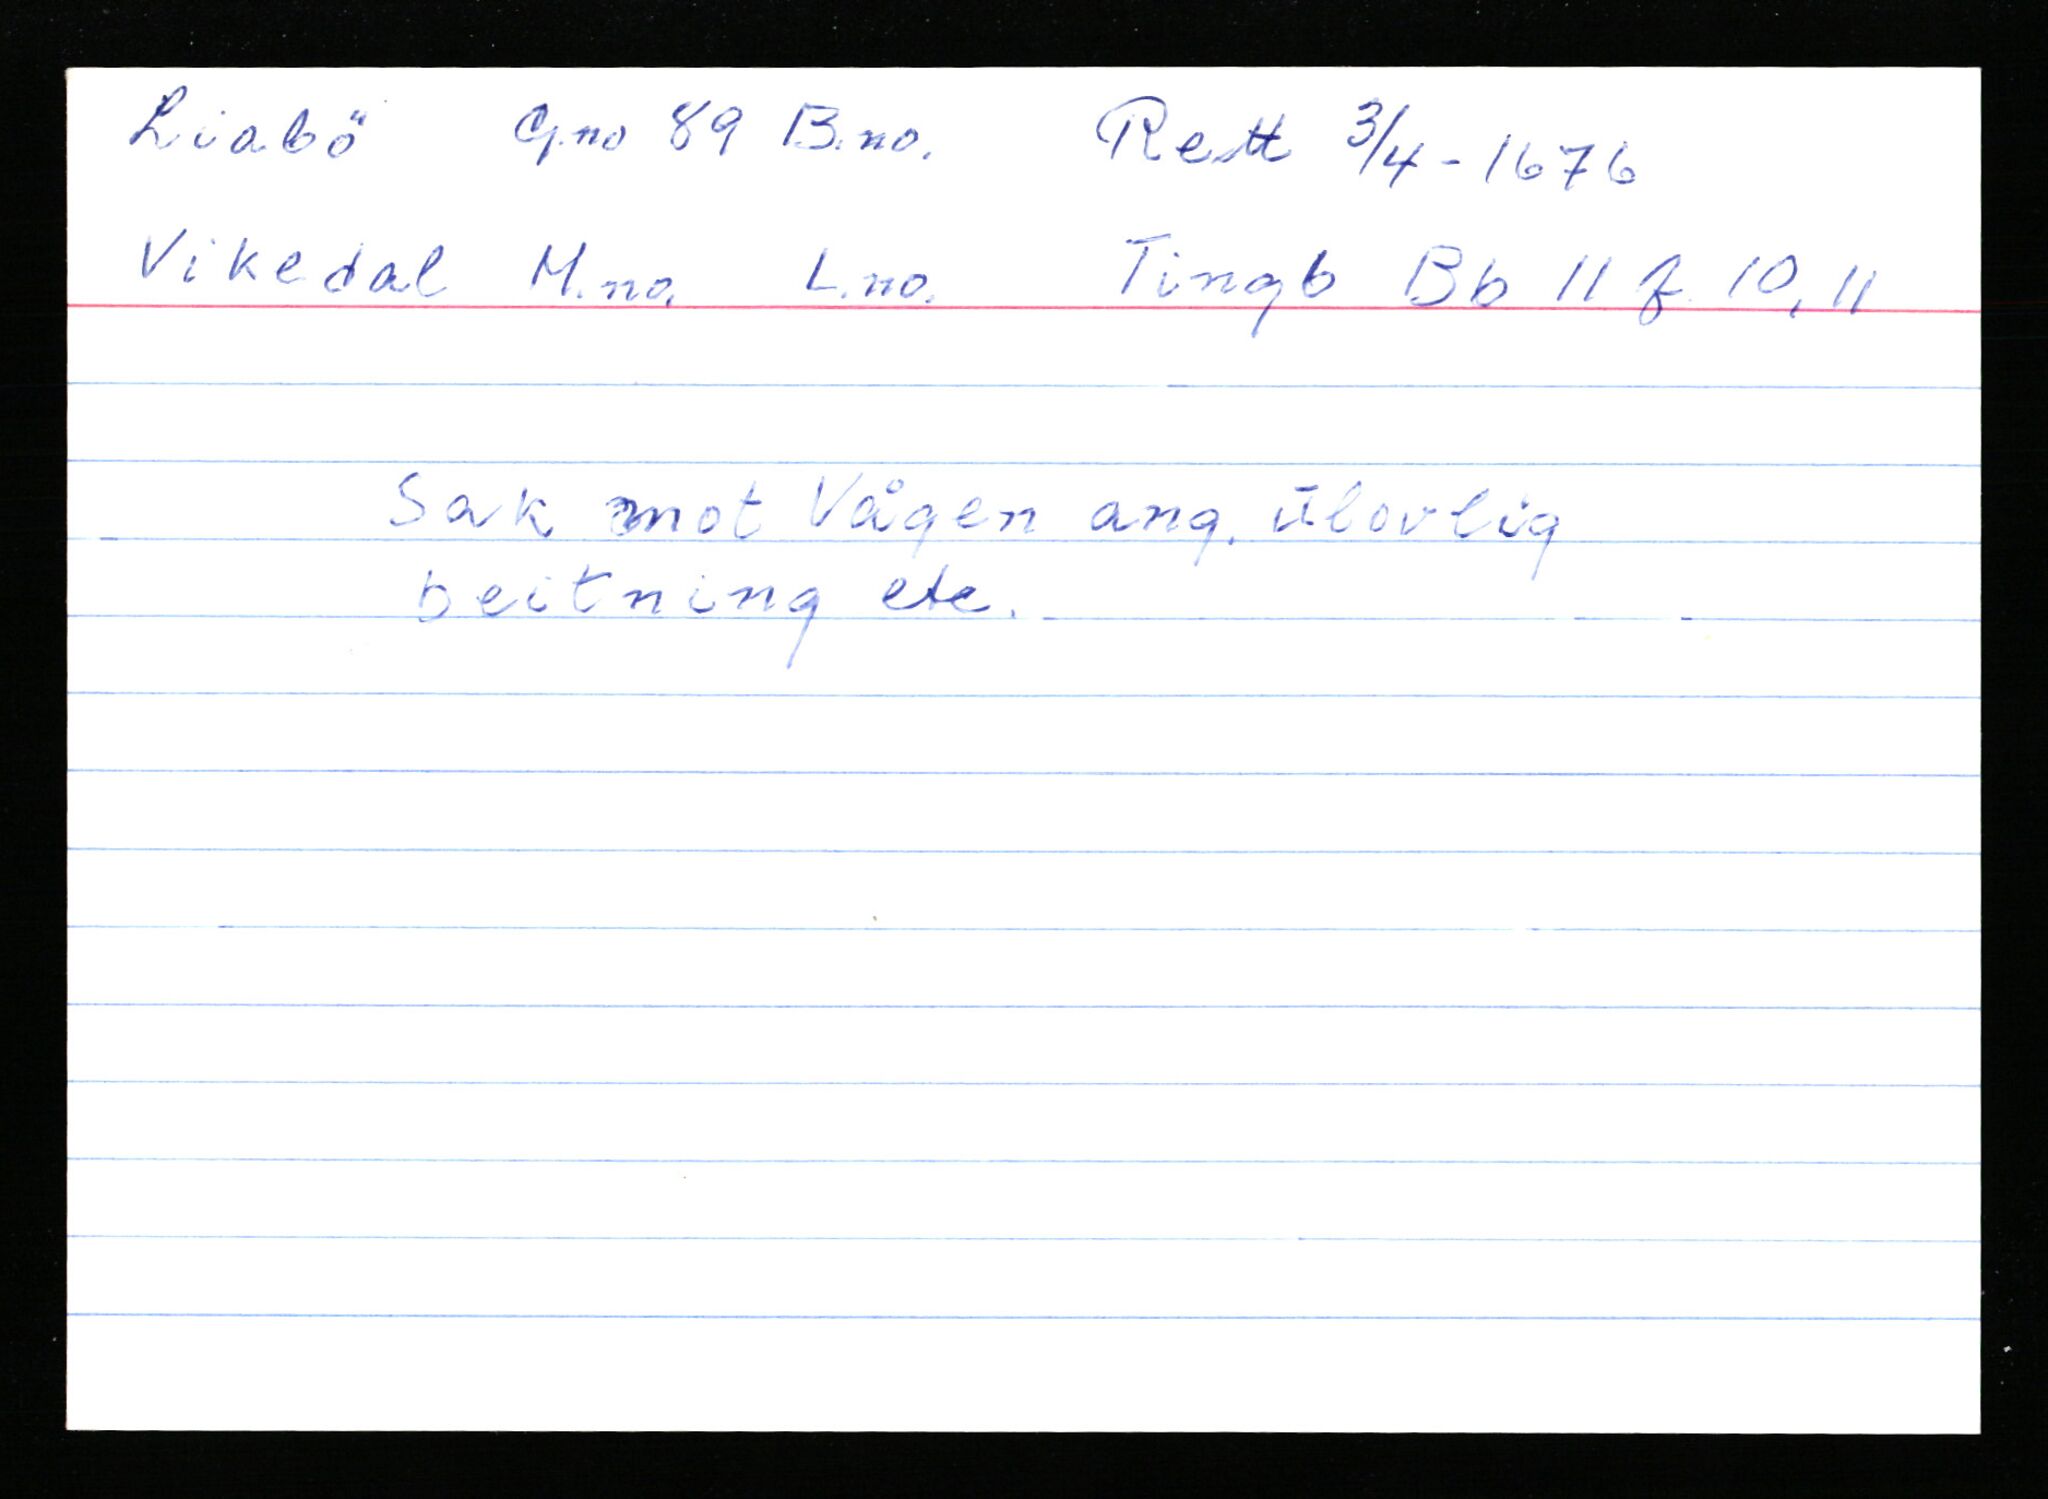 Liabö G.no 89 B.no. Rett 3/4-1676
Vikedal M.no. L.no. Tingb Bb 11 f. 10, 11
Sak mot Vågen ang. ulovlig
beitning etc.